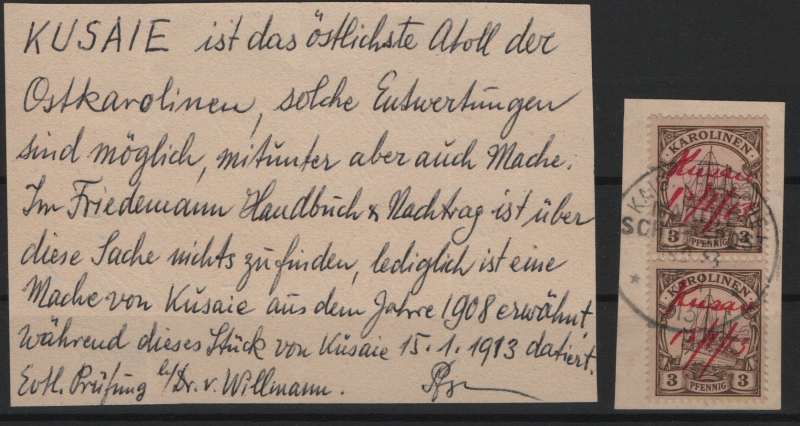 KUSAIE ist das östlichste Atoll der
Ostkarolinen, solche Entwertungen
sind möglich, mitunter aber auch Mache.
Im Friedemann Handbuch & Nachtrag ist über
diese Sache nichts zu finden, lediglich ist eine
Mache von Kusaie aus dem Jahre 1908 erwähnt,
während dieses Stück von Kusaie 15.1.1913 datiert.
Evtl. Prüfung b/Dr. v. Willmann.
KAROLINEN
Kusaie
3 PFENNIG 3
KAROLINEN
Kusaie
3 PFENNIG 3